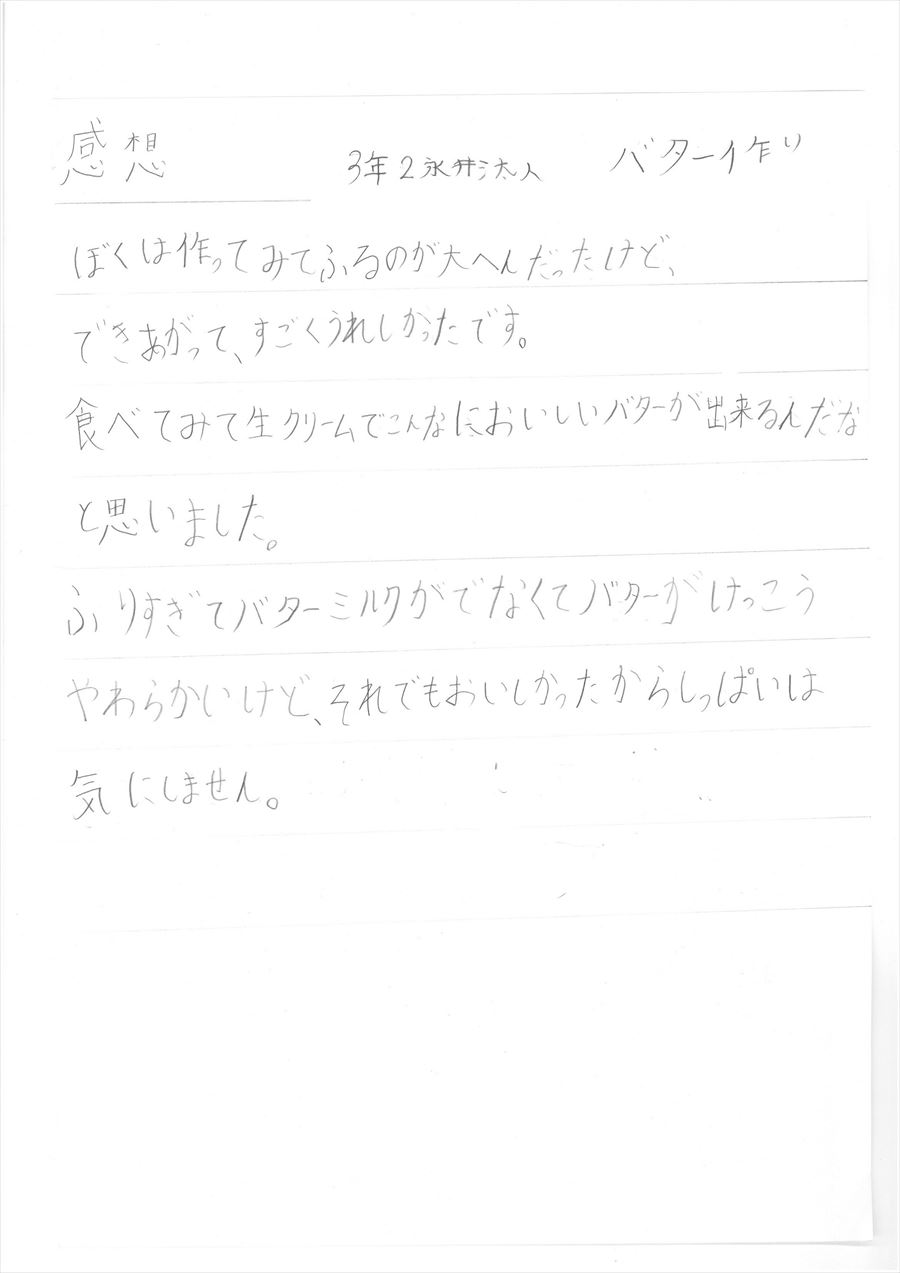 感想 3年2永井汰人 バター作り
ぼくは作ってみてふるのが大へんだったけど、
できあがって、すごくうれしかったです。
食べてみて生クリームでこんなにおいしいバターが出来るんだな
と思いました。
ふりすぎてバターミルクがでなくてバターがけっこう
やわらかいけど、それでもおいしかったからしっぱいは
気にしません。